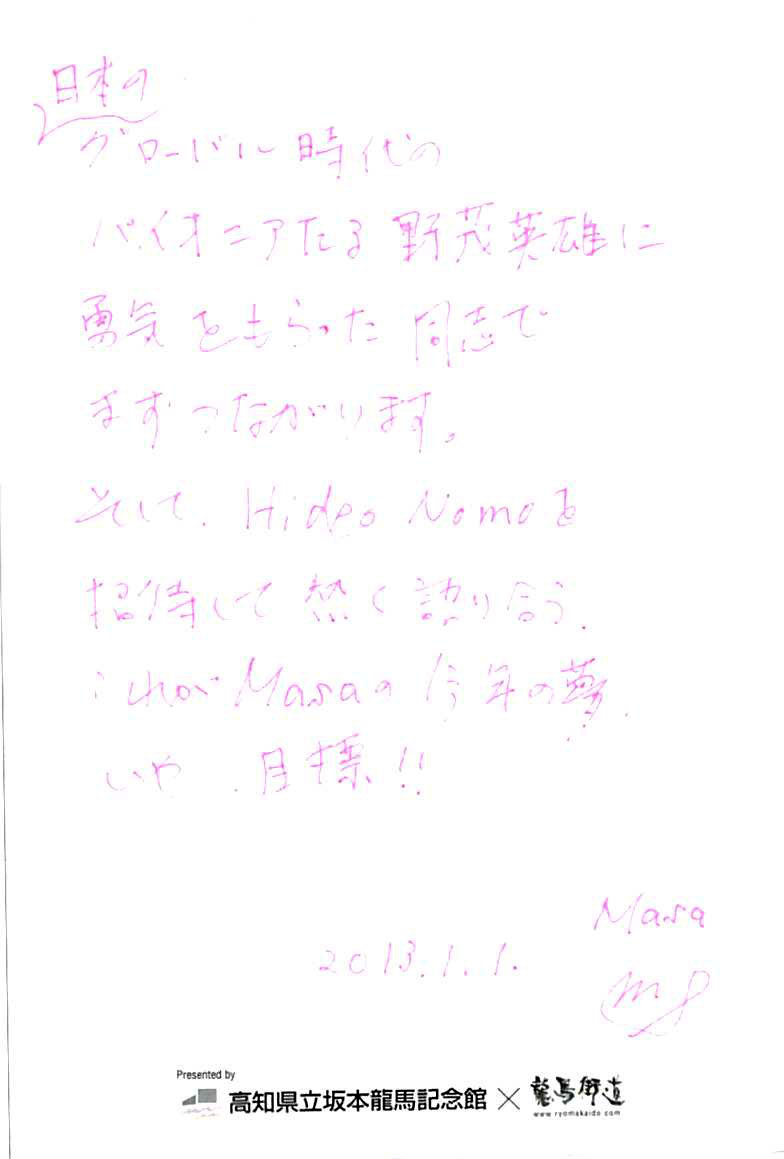 日本の
グローバル時代の
パイオニアたる野茂英雄に
勇気をもらった同志で
まずつながります。
そして、Hideo Nomoを
招待して熱く語り合う、
これがMasaの今年の夢、
いや、目標!!
Masa
2013.1.1.
Presented by
高知県立坂本龍馬記念館×龍馬街道
www.ryomakaido.com